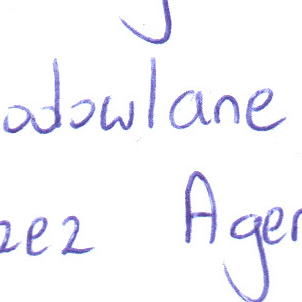 odowlane
zez Agen